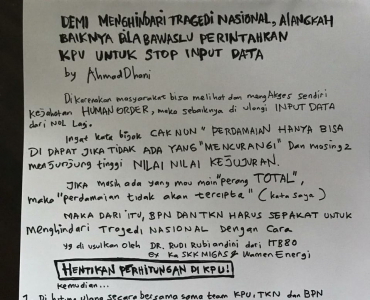 DEMI MENGHINDARI TRAGEDI NASIONAL, ALANGKAH
BAIKNYA BILA BAWASLU PERINTAHKAN
KPU UNTUK STOP INPUT DATA
by AhmadDhani
Dikarenakan masyarakat bisa melihat dan mengAkses sendiri
kejahatan HUMAN ORDER, maka sebaiknya di ulangi INPUT DATA
dari NOL Lagi.
Ingat kata bijak CAK NUN "PERDAMAIAN HANYA BISA
DI DAPAT JIKA TIDAK ADA YANG "MENCURANGI" DAN Masing2
menjunjung tinggi NILAI NILAI KEJUJURAN.
JIKA masih ada yang mau main "perang TOTAL",
maka "perdamaian tidak akan tercipta" (kata saya)
MAKA DARI ITU, BPN DAN TKN HARUS SEPAKAT UNTUK
menghindari Tragedi NASIONAL dengan Cara
yg di usulkan oleh DR. RUDI RUBIANDINI dari ITB80
ex Ka SKK MIGAS & Wamen Energi
HENTIKAN PERHITUNGAN DI KPU!
kemudian...
1. Di hitung ulang secara bersama sama team KPU, TKN dan BPN